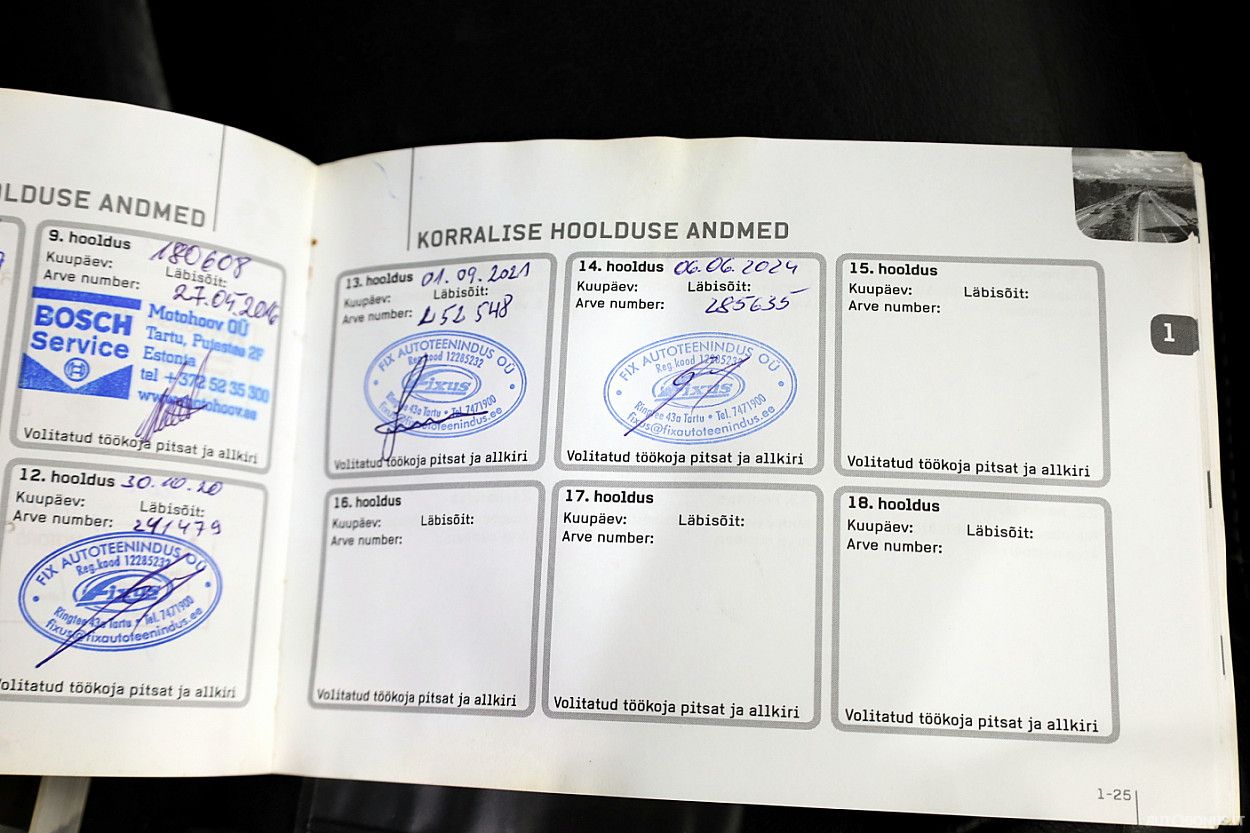 OLDUSE ANDMED
9. hooldus 180608
Kuupäev: Läbisõit:
Arve number: 27.04.2016
BOSCH
Service
Motohoov OÜ
Tartu, Puiestee 2F
Estonia
tel +372 52 35 300
www.motohoov.ee
Volitatud töökoja pitsat ja allkiri
12. hooldus 30.10.20
Kuupäev: Läbisõit:
Arve number: 241479
FIX AUTOTEENINDUS OÜ
Reg.kood 12285232
Fixus
Ringtee 43a Tartu • Tel. 7471900
fixus@fixautoteenindus.ee
Volitatud töökoja pitsat ja allkiri
KORRALISE HOOLDUSE ANDMED
13. hooldus 01.09.2021
Kuupäev: Läbisõit:
Arve number: 252548
FIX AUTOTEENINDUS OÜ
Reg.kood 12285232
Fixus
Ringtee 43a Tartu • Tel. 7471900
fixus@fixautoteenindus.ee
Volitatud töökoja pitsat ja allkiri
14. hooldus 06.06.2024
Kuupäev: Läbisõit:
Arve number: 285635
FIX AUTOTEENINDUS OÜ
Reg.kood 12285232
Fixus
Ringtee 43a Tartu • Tel. 7471900
fixus@fixautoteenindus.ee
Volitatud töökoja pitsat ja allkiri
15. hooldus
Kuupäev: Läbisõit:
Arve number:
Volitatud töökoja pitsat ja allkiri
1
16. hooldus
Kuupäev: Läbisõit:
Arve number:
Volitatud töökoja pitsat ja allkiri
17. hooldus
Kuupäev: Läbisõit:
Arve number:
Volitatud töökoja pitsat ja allkiri
18. hooldus
Kuupäev: Läbisõit:
Arve number:
Volitatud töökoja pitsat ja allkiri
1-25